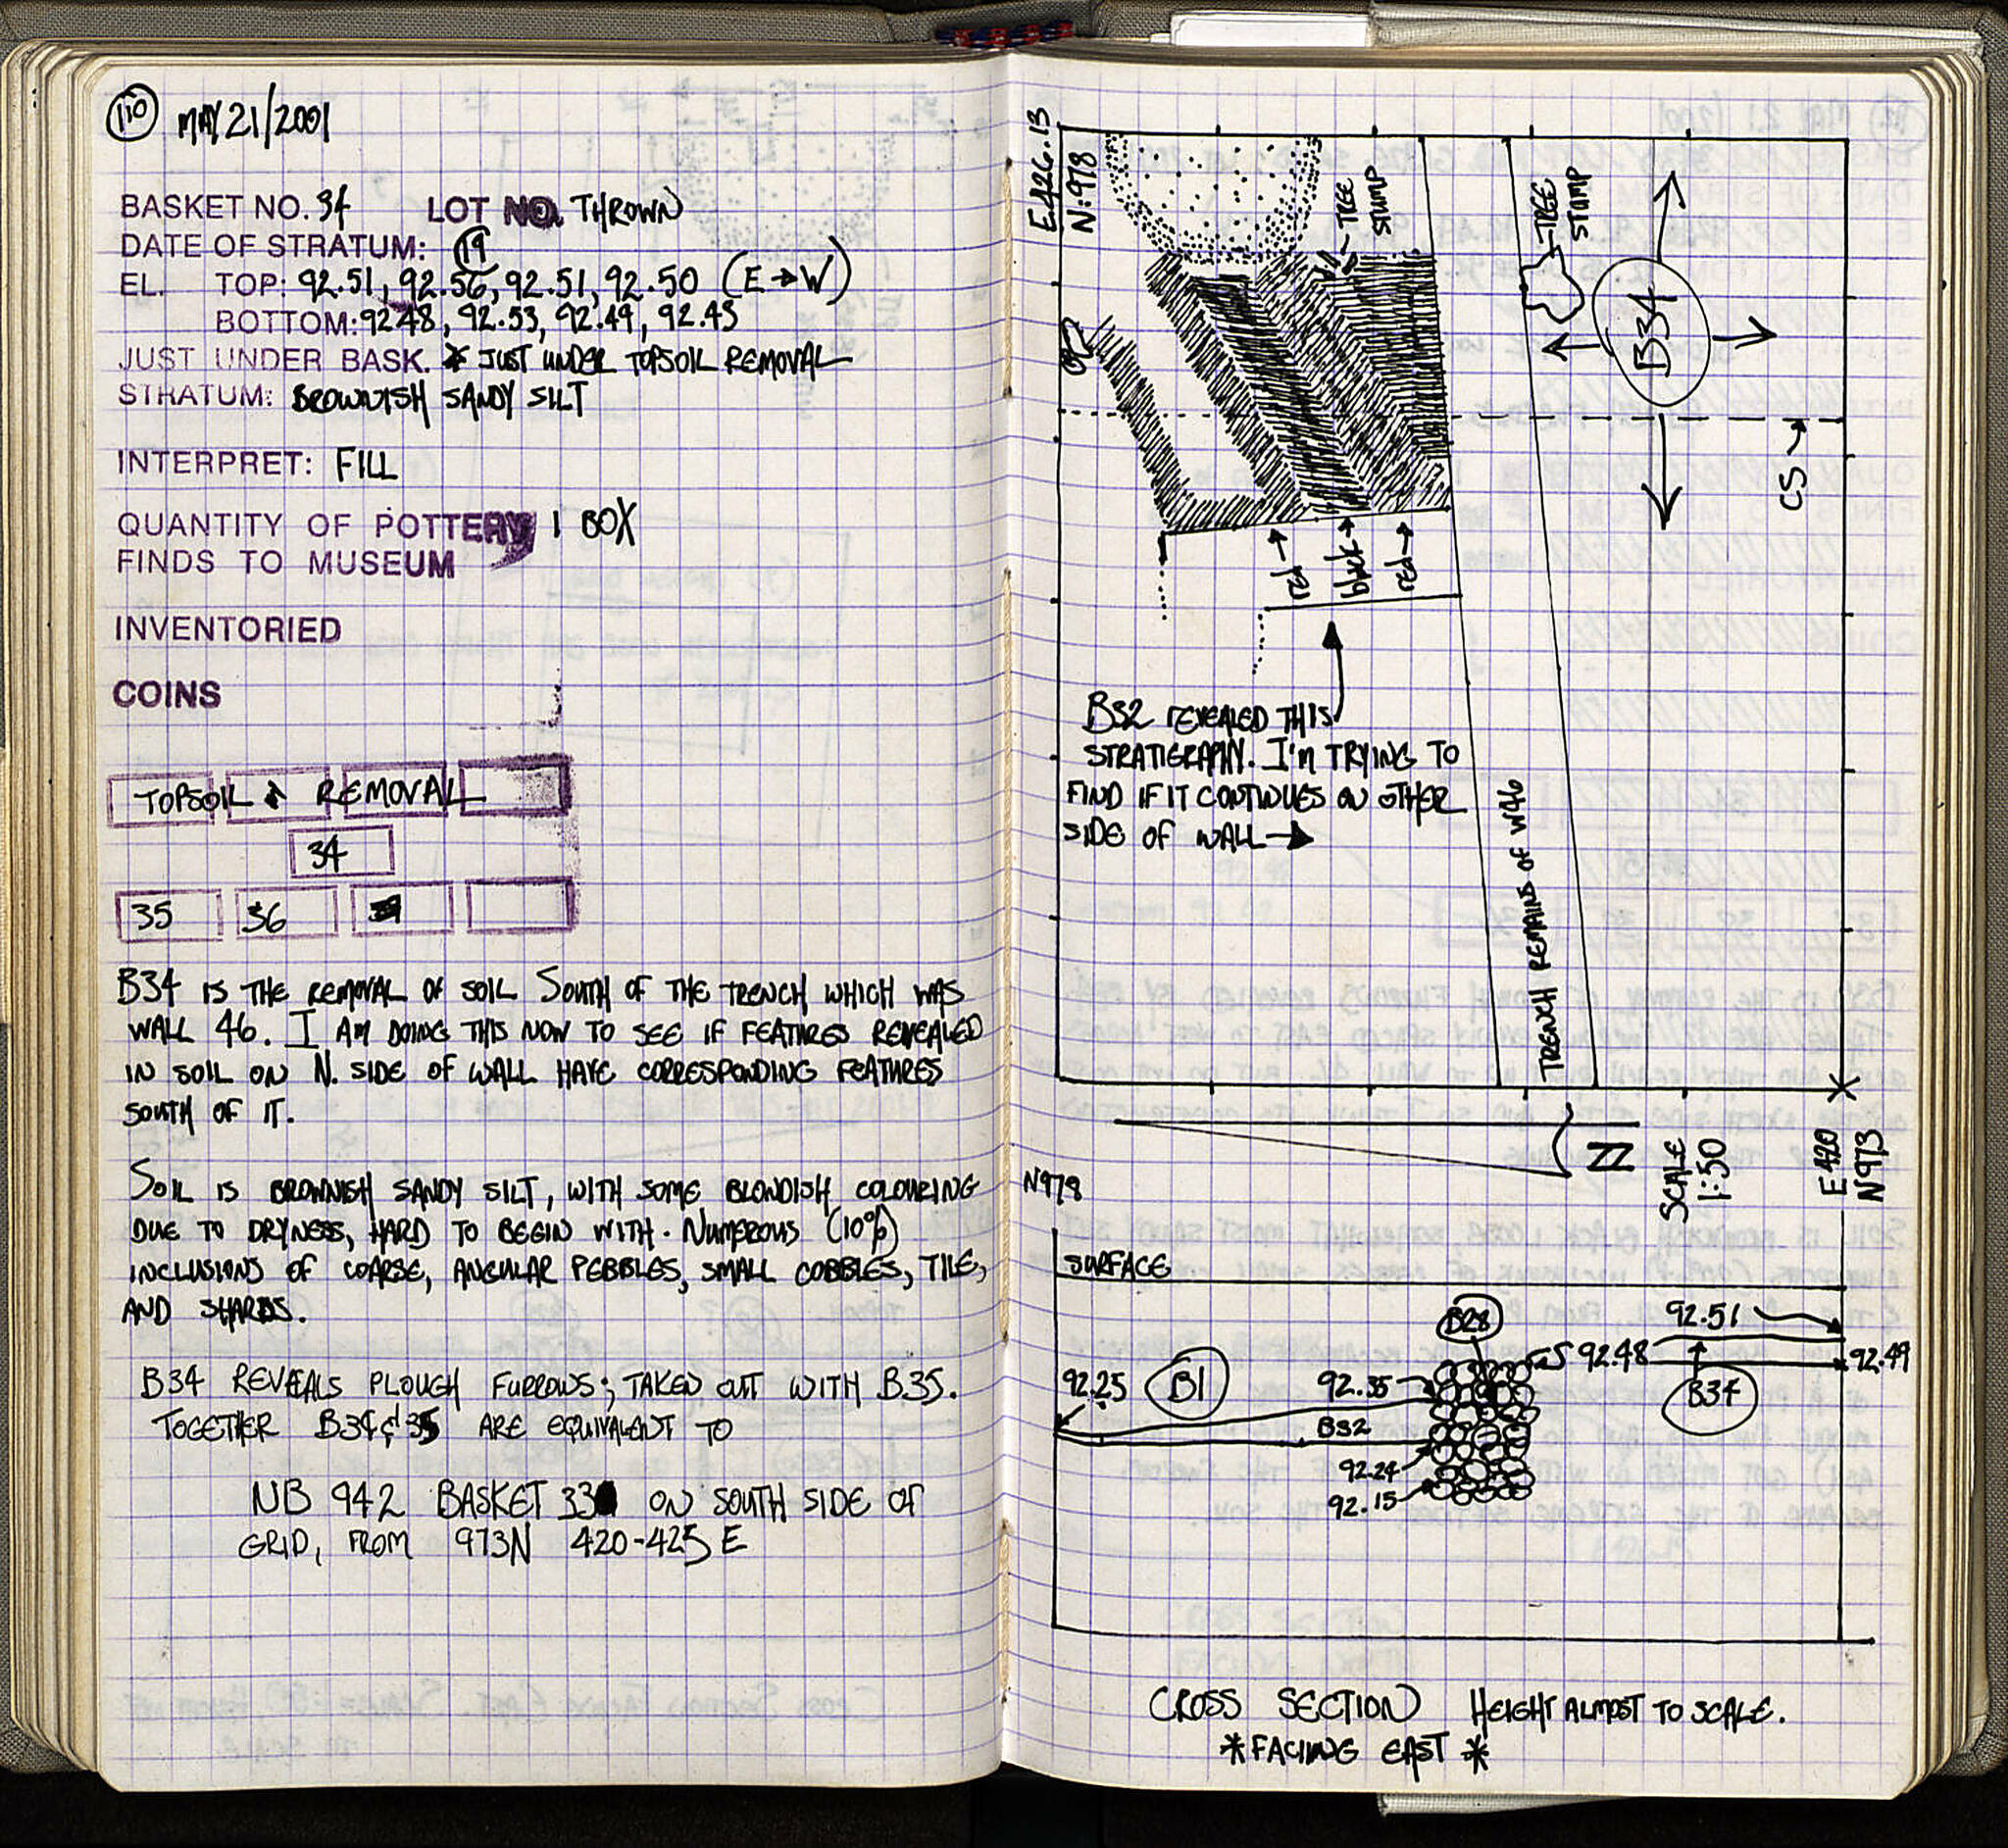 110 MAY 21/2001
BASKET NO. 34 LOT NO. THROWN
DATE OF STRATUM: 19
EL. TOP: 92.51, 92.56, 92.51, 92.50 (E→W)
BOTTOM: 92.48, 92.53, 92.49, 92.45
JUST UNDER BASK. * JUST UNDER TOPSOIL REMOVAL
STRATUM: BROWNISH SANDY SILT
INTERPRET: FILL
QUANTITY OF POTTERY 1 BOX
FINDS TO MUSEUM
INVENTORIED
COINS
TOPSOIL REMOVAL
34
35 36
B34 IS THE REMOVAL OF SOIL SOUTH OF THE TRENCH WHICH WAS
WALL 46. I AM DOING THIS NOW TO SEE IF FEATURES REVEALED
IN SOIL ON N. SIDE OF WALL HAVE CORRESPONDING FEATURES
SOUTH OF IT.
SOIL IS BROWNISH SANDY SILT, WITH SOME BLONDISH COLOURING
DUE TO DRYNESS, HARD TO BEGIN WITH. NUMEROUS (10%)
INCLUSIONS OF COARSE, ANGULAR PEBBLES, SMALL COBBLES, TILE,
AND SHARDS.
B34 REVEALS PLOUGH FURROWS; TAKEN OUT WITH B35.
TOGETHER B34 & 35 ARE EQUIVALENT TO
NB 942 BASKET 33 ON SOUTH SIDE OF
GRID, FROM 973N 420-425 E
E426.13
N:978
TREE
STUMP
TREE
STUMP
B34
CS →
red
black
red
B32 REVEALED THIS
STRATIGRAPHY. I'M TRYING TO
FIND IF IT CONTINUES ON OTHER
SIDE OF WALL →
TRENCH REMAINS OF W46
N
SCALE
1:50
E420
N973
N978
SURFACE
B28
92.51
92.48
92.49
92.25
B1
92.35
B34
B32
92.24
92.15
CROSS SECTION HEIGHT ALMOST TO SCALE.
*FACING EAST*